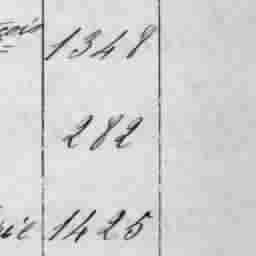 1348
282
1425